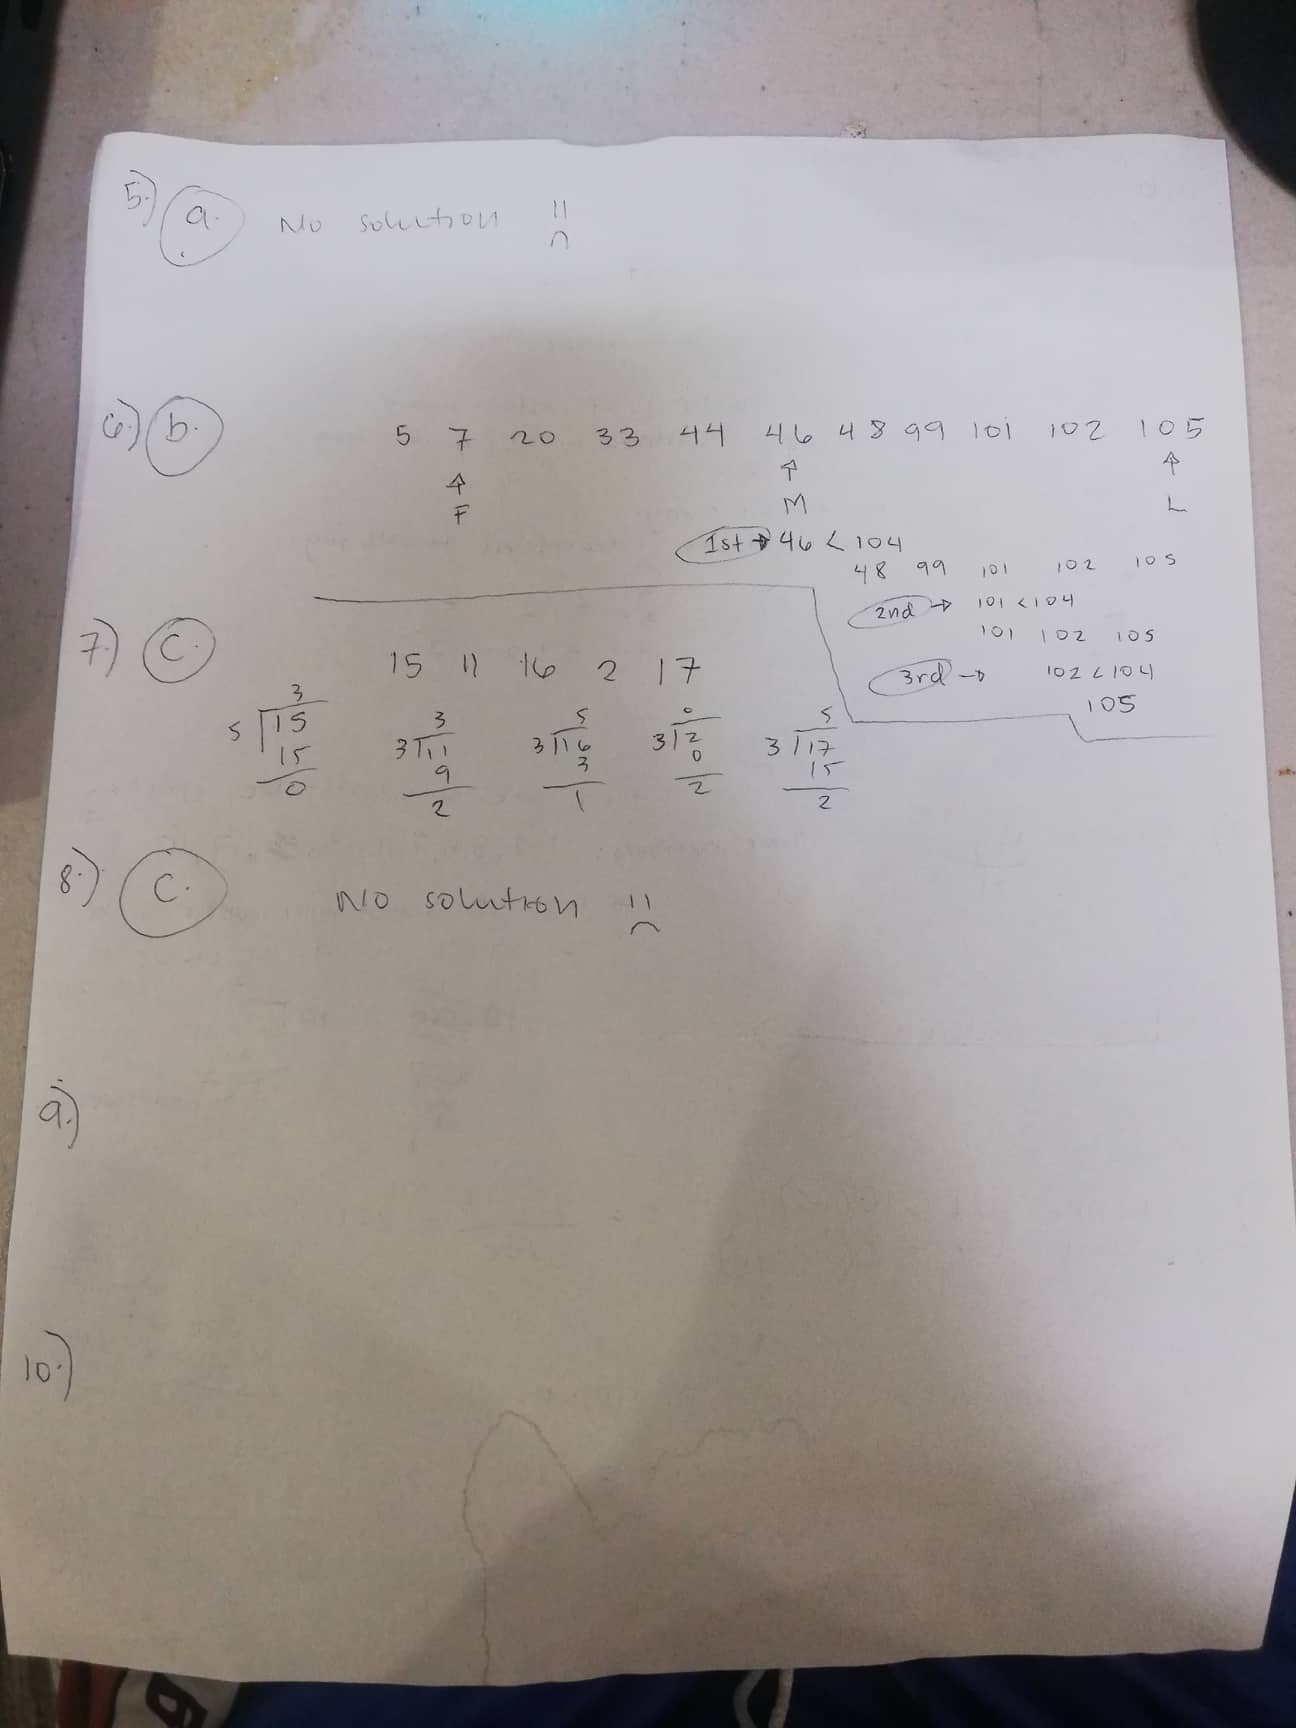 5.) a. No solution
6.) b. 5 7 20 33 44 46 48 99 101 102 105
↑ ↑ ↑
F M L
1st → 46 < 104
48 99 101 102 105
2nd → 101 < 104
101 102 105
3rd → 102 < 104
105
7.) c. 15 11 16 2 17
3 3 5 0 5
5 15 3 11 3 16 3 2 3 17
15 9 3 0 15
0 2 1 2 2
8.) c. No solution
9.)
10.)